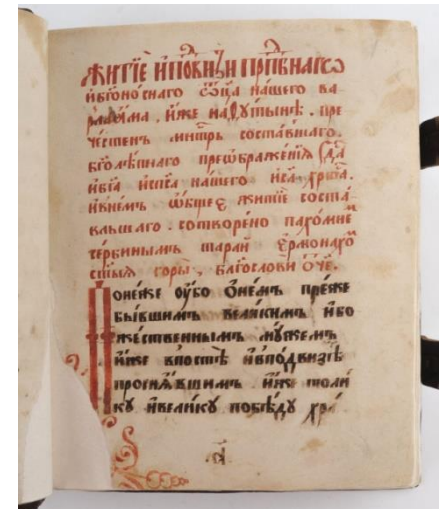 жи́тїе и҆ по́двизи прпⷣбнагѡ
и҆ бг҃оно́снагѡ ѻ҆ц҃а̀ нашего ва
рлаа́ма, и҆́же на хѹтынѣ. пре
че́стенъ монⷭ҇тырь соста́вшаго.
бг҃олѣ́пнаго преѡбраже́нїѧ гдⷭ҇а
и҆ бг҃а и҆ сп҃са нашего і҆са хрⷭ҇та.
и҆ в не́мъ ѡ҆́бщее житїе соста́
вльшаго. сотворено пахо́мие
іермонахо
ст҃ыѧ горы̀, благослови ѻ҆́ч҃е.
Поне́же ѹ҆́бо ѻ҆ не́мъ пре́же
бы́вшимъ вели́кимъ и҆ бо
же́ственнымъ мѹ́жемъ
и҆́же в постѣ̀ и҆ в по́двизѣ
просїѧ́вшимъ и҆́же толи
кѹ и҆ вели́кѹ побѣ́дѹ